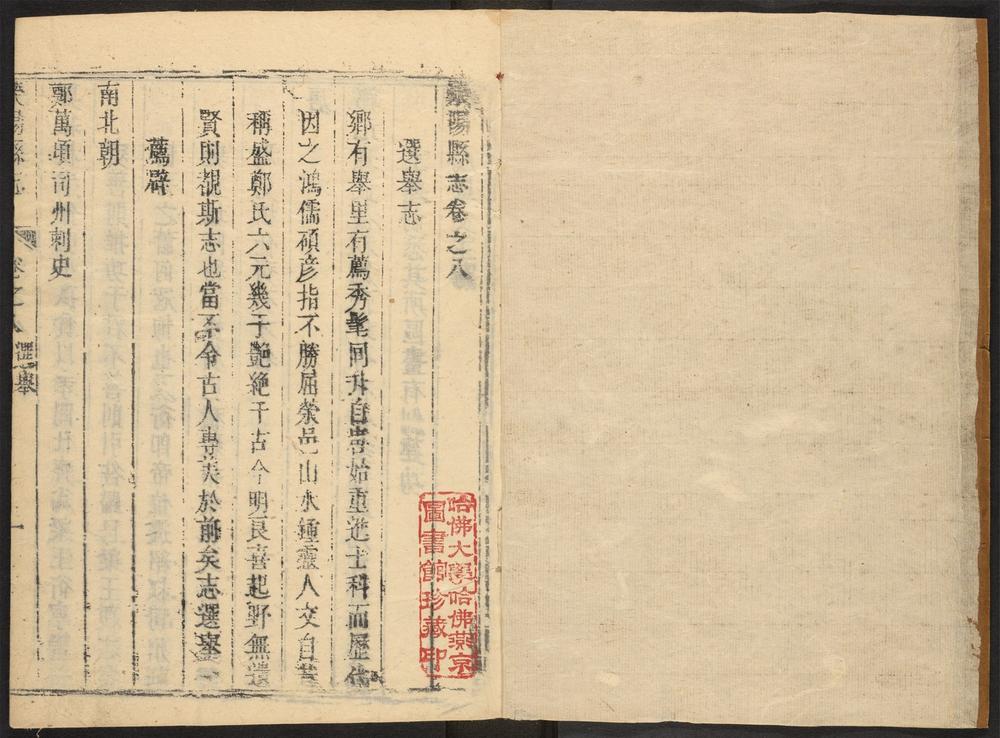 滎陽縣志卷之八
選舉志
鄉有舉里有薦秀髦同升自昔始重進士科而歷代
因之鴻儒碩彥指不勝屈滎邑山水鍾靈人文自昔
稱盛鄭氏六元幾于艷絶千古今明良喜起野無遺
賢則覩斯志也當不令古人專美於前矣志選舉
薦辟
南北朝
鄭萬頃司州刺史
滎陽縣志 卷之八 選舉 一
哈佛大學哈佛燕京
圖書館珍藏印